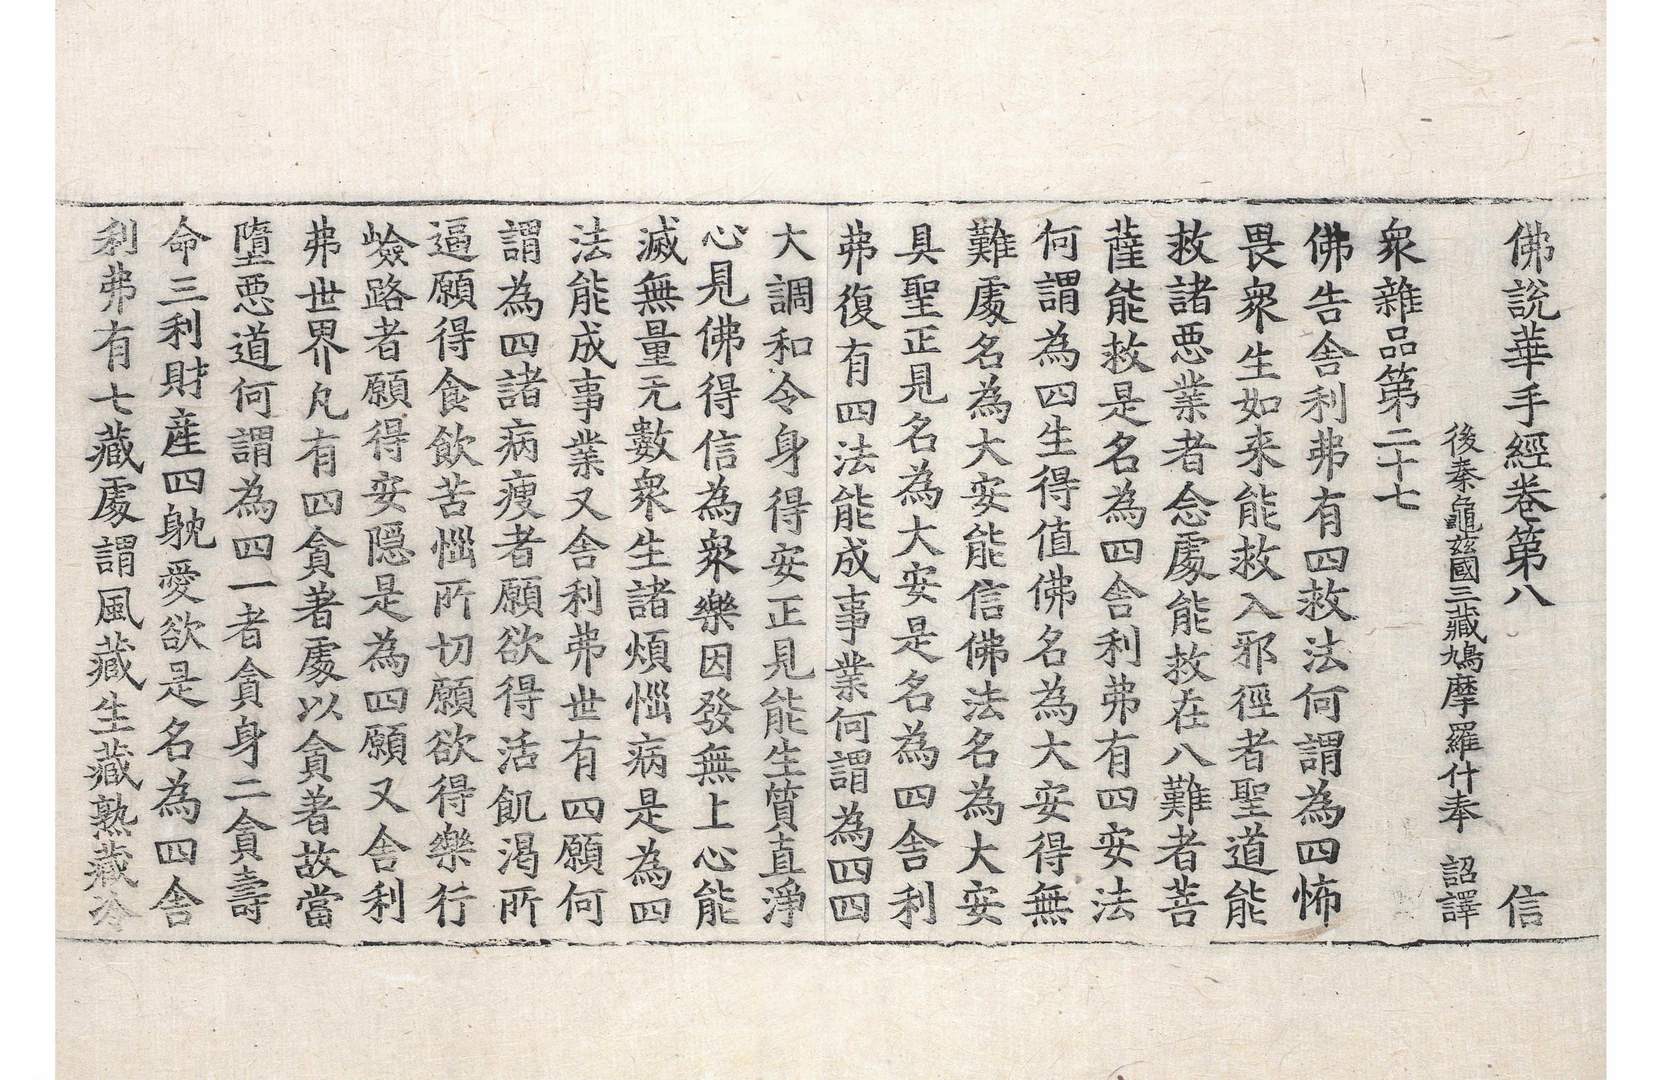 佛說華手經卷第八 信
後秦龜茲國三藏鳩摩羅什奉 詔譯
衆雜品第二十七
佛告舍利弗有四救法何謂為四怖
畏衆生如来能救入邪徑者聖道能
救諸惡業者念處能救在八難者菩
薩能救是名為四舍利弗有四安法
何謂為四生得值佛名為大安得無
難處名為大安能信佛法名為大安
具聖正見名為大安是名為四舍利
弗復有四法能成事業何謂為四四
大調和令身得安正見能生質直淨
心見佛得信為衆樂因發無上心能
滅無量无數衆生諸煩惱病是為四
法能成事業又舍利弗世有四願何
謂為四諸病瘦者願欲得活飢渴所
逼願得食飲苦惱所切願欲得樂行
嶮路者願得安隱是為四願又舍利
弗世界凡有四貪著處以貪著故當
墮惡道何謂為四一者貪身二貪壽
命三利財產四躭愛欲是名為四舍
利弗有七藏處謂風藏生藏熟藏冷